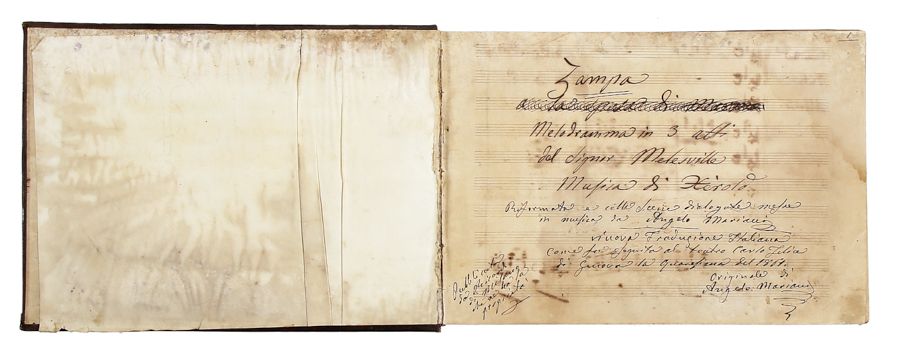 Zampa
o la Sposa di Marmo
Melodramma in 3 atti
del Signor Melesville
Musica di Herold
Riformata e colle Scene dialogate messe
in musica da Angelo Mariani
nuova Traduzione Italiana
come fu eseguita al Teatro Carlo Felice
di Genova la Quaresima del
Originale di
Angelo Mariani